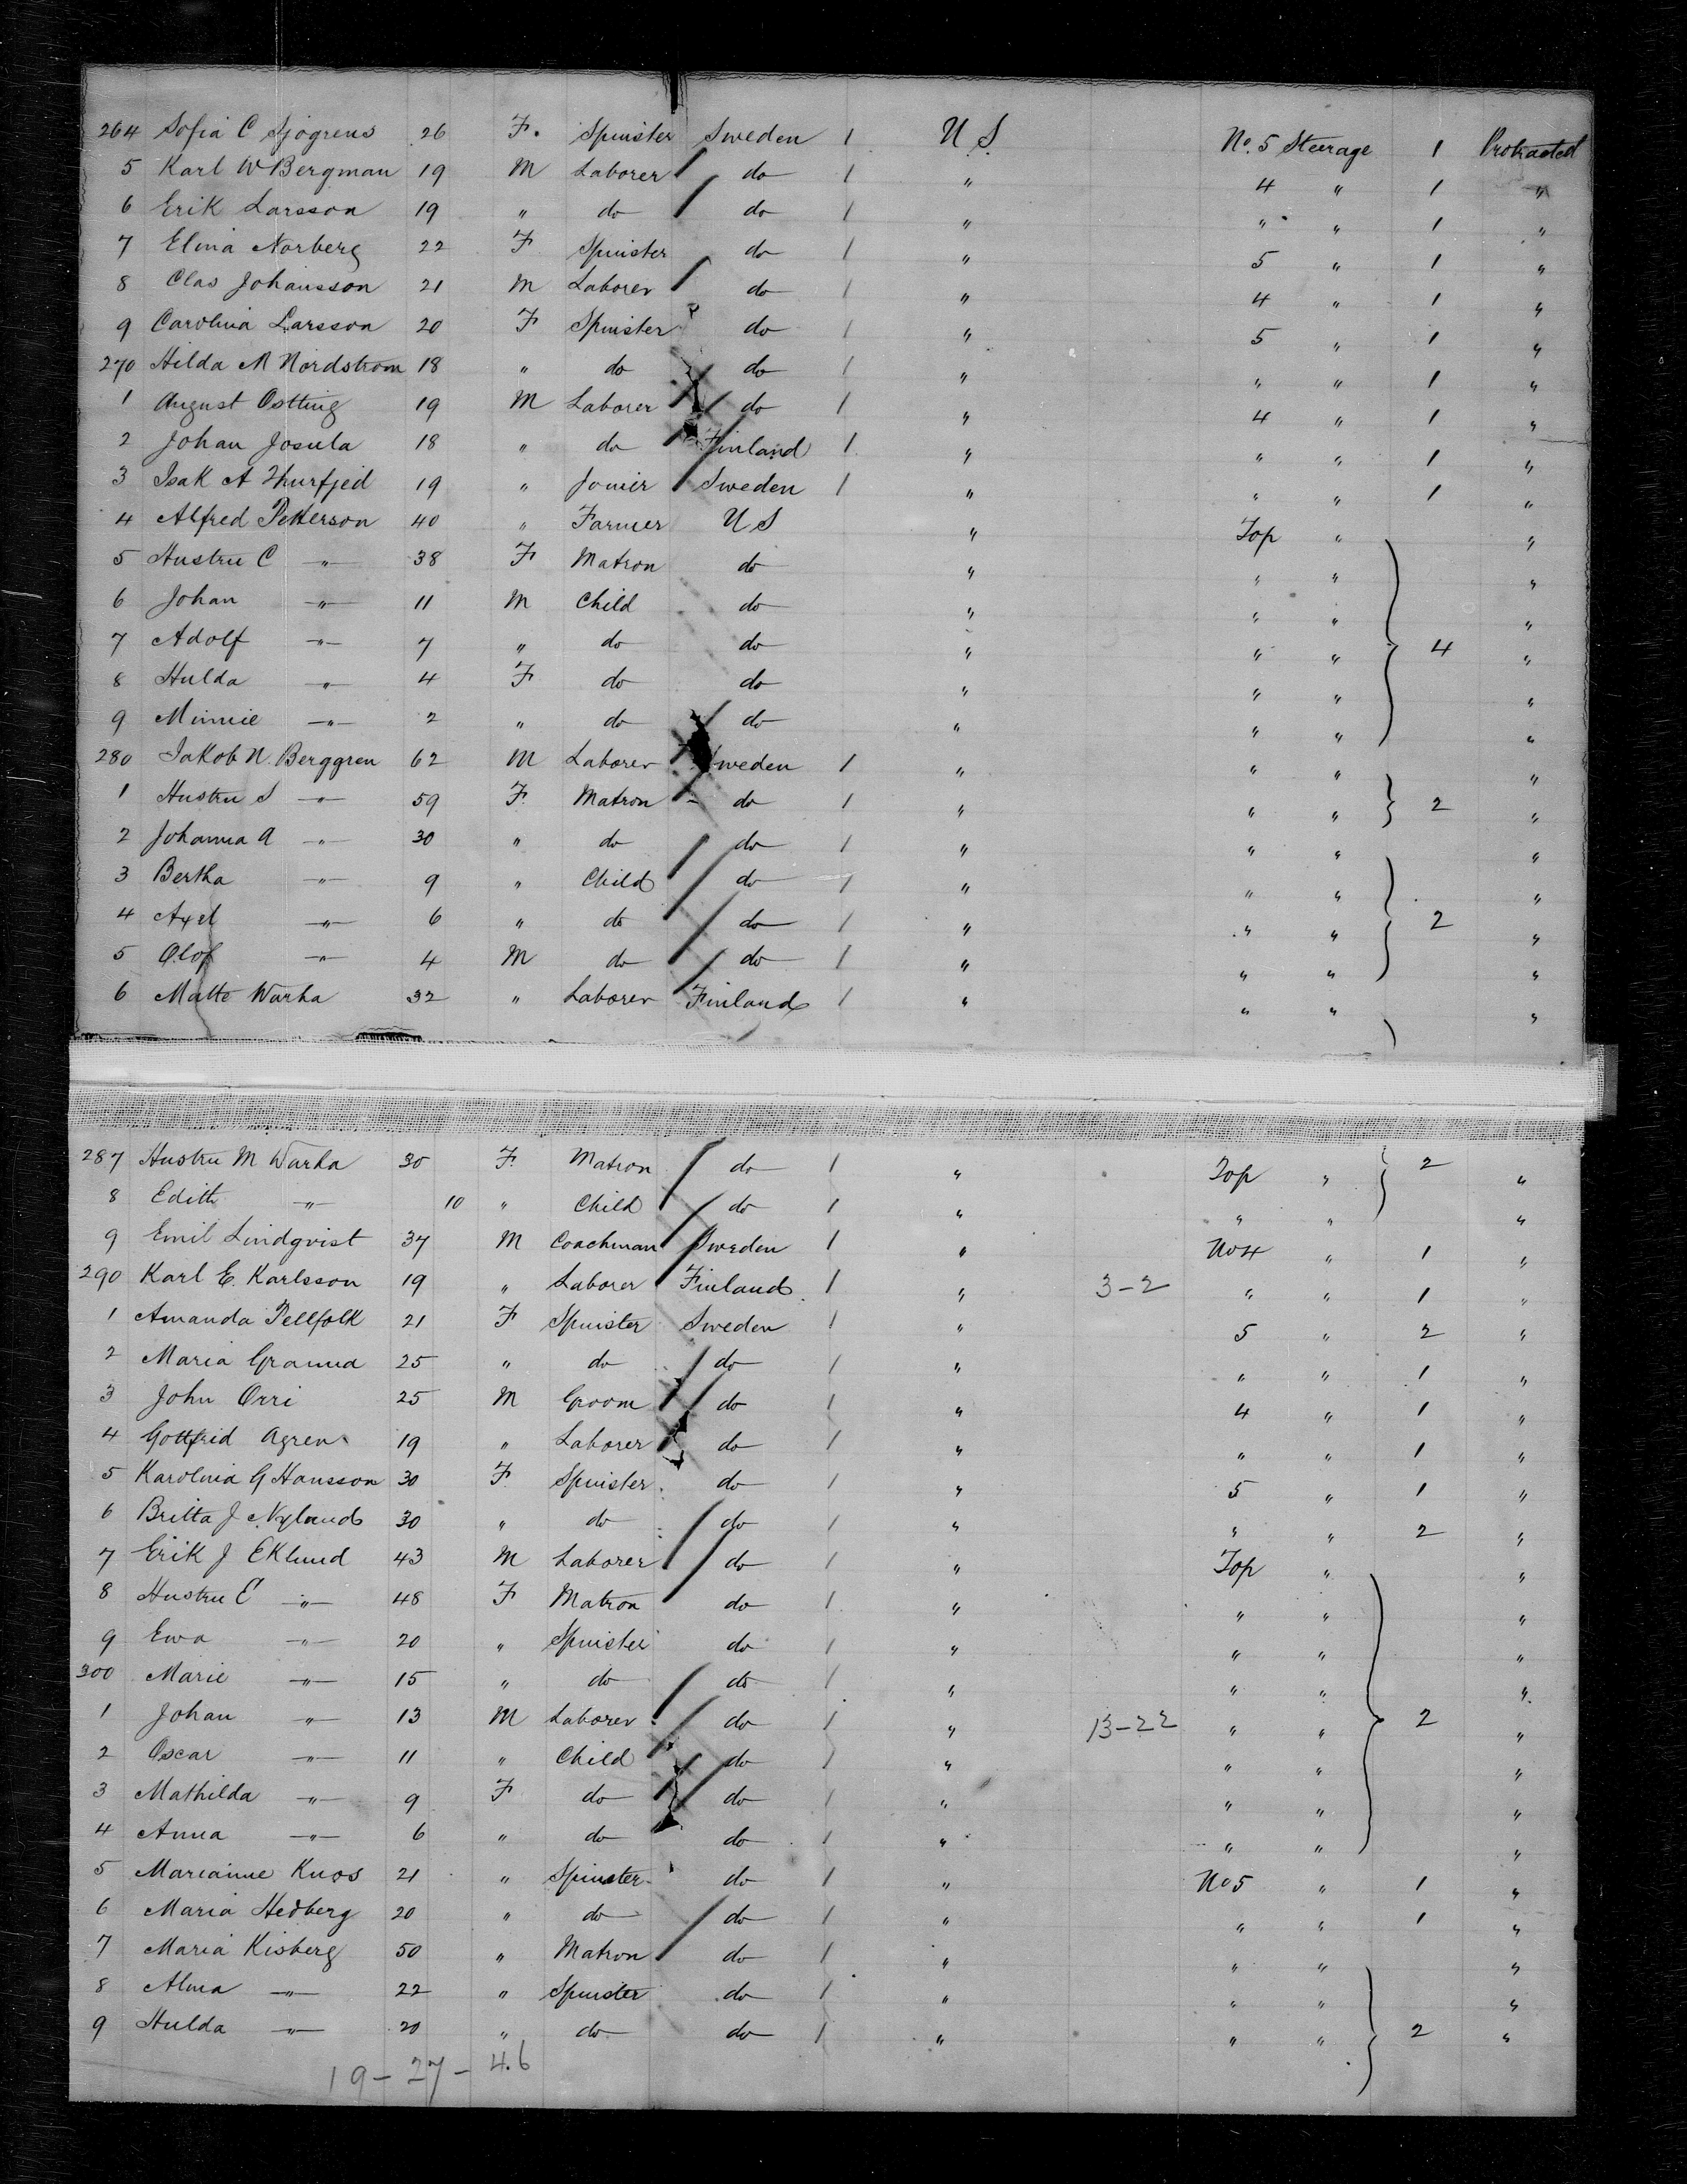 264 Sofia C Sjogrens 26 F. Spinster Sweden 1 U S No. 5 Steerage 1 Protracted
5 Karl W Bergman 19 M Laborer do 1 " 4 " 1 "
6 Erik Larsson 19 " do do 1 " " " 1 "
7 Elina Norberg 22 F Spinster do 1 " 5 " 1 "
8 Clas Johansson 21 M Laborer do 1 " 4 " 1 "
9 Carolina Larsson 20 F Spinster do 1 " 5 " 1 "
270 Hilda M Nordstrom 18 " do do 1 " " " 1 "
1 August Ostting 19 M Laborer do 1 " 4 " 1 "
2 Johan Josula 18 " do Finland 1 " " " 1 "
3 Isak A Thurfjed 19 " Joiner Sweden 1 " " " 1 "
4 Alfred Petterson 40 " Farmer U S " Top " "
5 Hustru C " 38 F Matron do " " " "
6 Johan " 11 M Child do " " " "
7 Adolf " 7 " do do " " " 4 "
8 Hulda " 4 F do do " " " "
9 Minnie " 2 " do do " " " "
280 Jakob N. Berggren 62 M Laborer Sweden 1 " " " "
1 Hustru S " 59 F. Matron do 1 " " " 2 "
2 Johanna A " 30 " do do 1 " " " "
3 Bertha " 9 " Child do 1 " " " "
4 Axel " 6 " do do 1 " " " 2 "
5 Olof " 4 M do do 1 " " " "
6 Matte Warha 32 " Laborer Finland 1 " " " "
287 Hustru M Warha 30 F. Matron do 1 " Top " 2 "
8 Edith " 10 " Child do 1 " " " "
9 Emil Lindqvist 37 M Coachman Sweden 1 " No 4 " 1 "
290 Karl E. Karlsson 19 " Laborer Finland 1 " 3-2 " " 1 "
1 Amanda Pellfolk 21 F Spinster Sweden 1 " 5 " 2 "
2 Maria Granna 25 " do do 1 " " " 1 "
3 John Orri 25 M Groom do 1 " 4 " 1 "
4 Gottfrid Agren 19 " Laborer do 1 " " " 1 "
5 Karolina G Hansson 30 F Spinster do 1 " 5 " 1 "
6 Britta J Nylund 30 " do do 1 " " " 2 "
7 Erik J Eklund 43 M Laborer do 1 " Top " "
8 Hustru E " 48 F Matron do 1 " " " "
9 Ewa " 20 " Spinster do 1 " " " "
300 Marie " 15 " do do 1 " " " "
1 Johan " 13 M Laborer do 1 " 13-22 " " 2 "
2 Oscar " 11 " Child do 1 " " " "
3 Mathilda " 9 F do do 1 " " " "
4 Anna " 6 " do do 1 " " " "
5 Marianne Knos 21 " Spinster do 1 " No 5 " 1 "
6 Maria Hedberg 20 " do do 1 " " " 1 "
7 Maria Kisberg 50 " Matron do 1 " " " "
8 Alma " 22 " Spinster do 1 " " " "
9 Hulda " 20 " do do 1 " " " 2 "
19-27-46